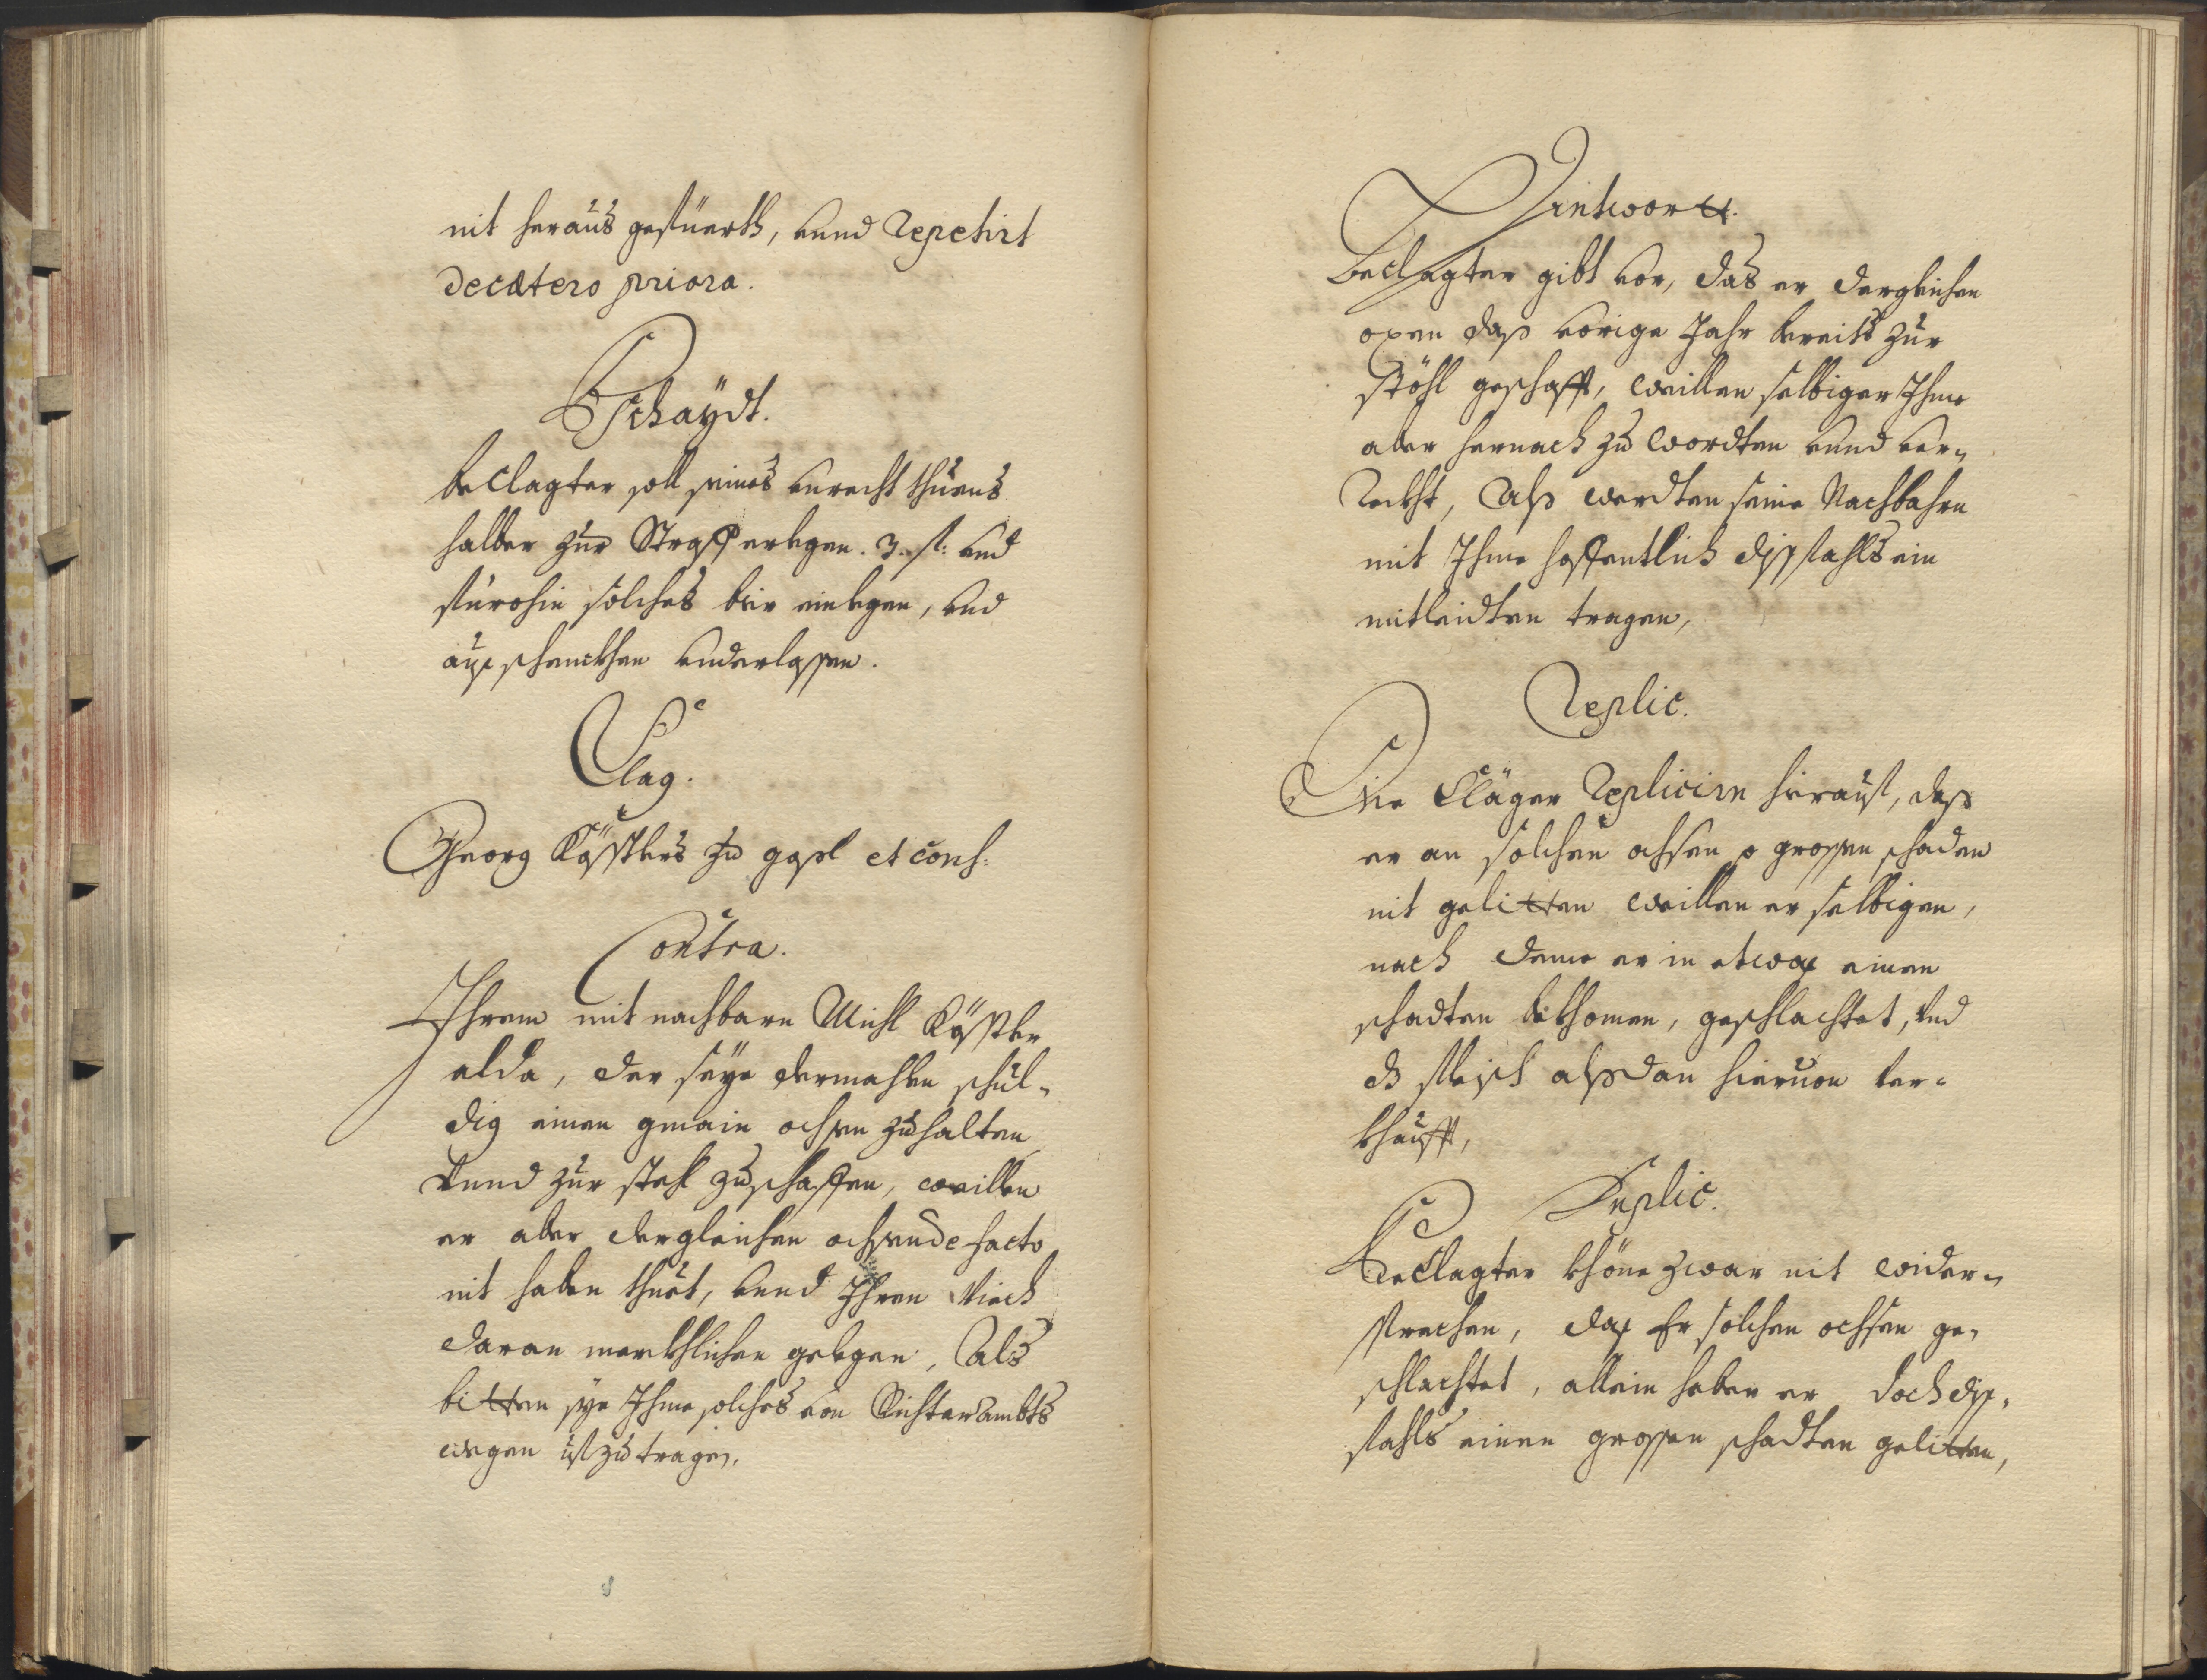 nit heraus gefüerth, vnnd Repetirt
decætero priora.
Bschaydt.
beclagter soll seines vnrecht thuens
halber zur Straff erlegen. 3. fl: vnd
fürohin solches bier einlegen, vnd
ausschenckhen vnderlassen.
Clag.
Georg Kösstlers zu gassl et cons:
Contra.
Ihrem mit nachbarn Michl Kösstler
alda, der seye dermahlen schul-
dig einen gmain ochsen zuhalten
vnnd zur stehl zuschaffen, weillen
er aber dergleichen ochsen de facto
nit haben thuet, vnnd Ihren Viech
daran merkhlichen gelegen, Als
bitten sye Ihme solches von Richterambts
wegen ufzutragen.
Antwortt.
Beclagter gibt vor, das er dergleichen
oxen dass vorige Jahr bereits zur
stöhl geschafft, weillen selbiger Ihme
aber hernach zu wordten vnnd ver-
Reckht, Alss werdten seine Nachbahrn
mit Ihme hoffentlich dissfahls ein
mitleidten tragen,
Replic.
Die Cläger Replicirn hierauf, dass
er an solchen ochsen so grossen schaden
nit gelitten weillen er selbigen,
nach deme er in etwas einen
schadten bekhomen, geschlachtet, vnd
ds fleisch alssdan hieruon ver-
khaufft,
Duplic.
Beclagter khöne zwar nit wider-
sprechen, das Er solchen ochsen ge-
schlachtet, allein haber er doch diss-
fahls einen grossen schadten gelitten,